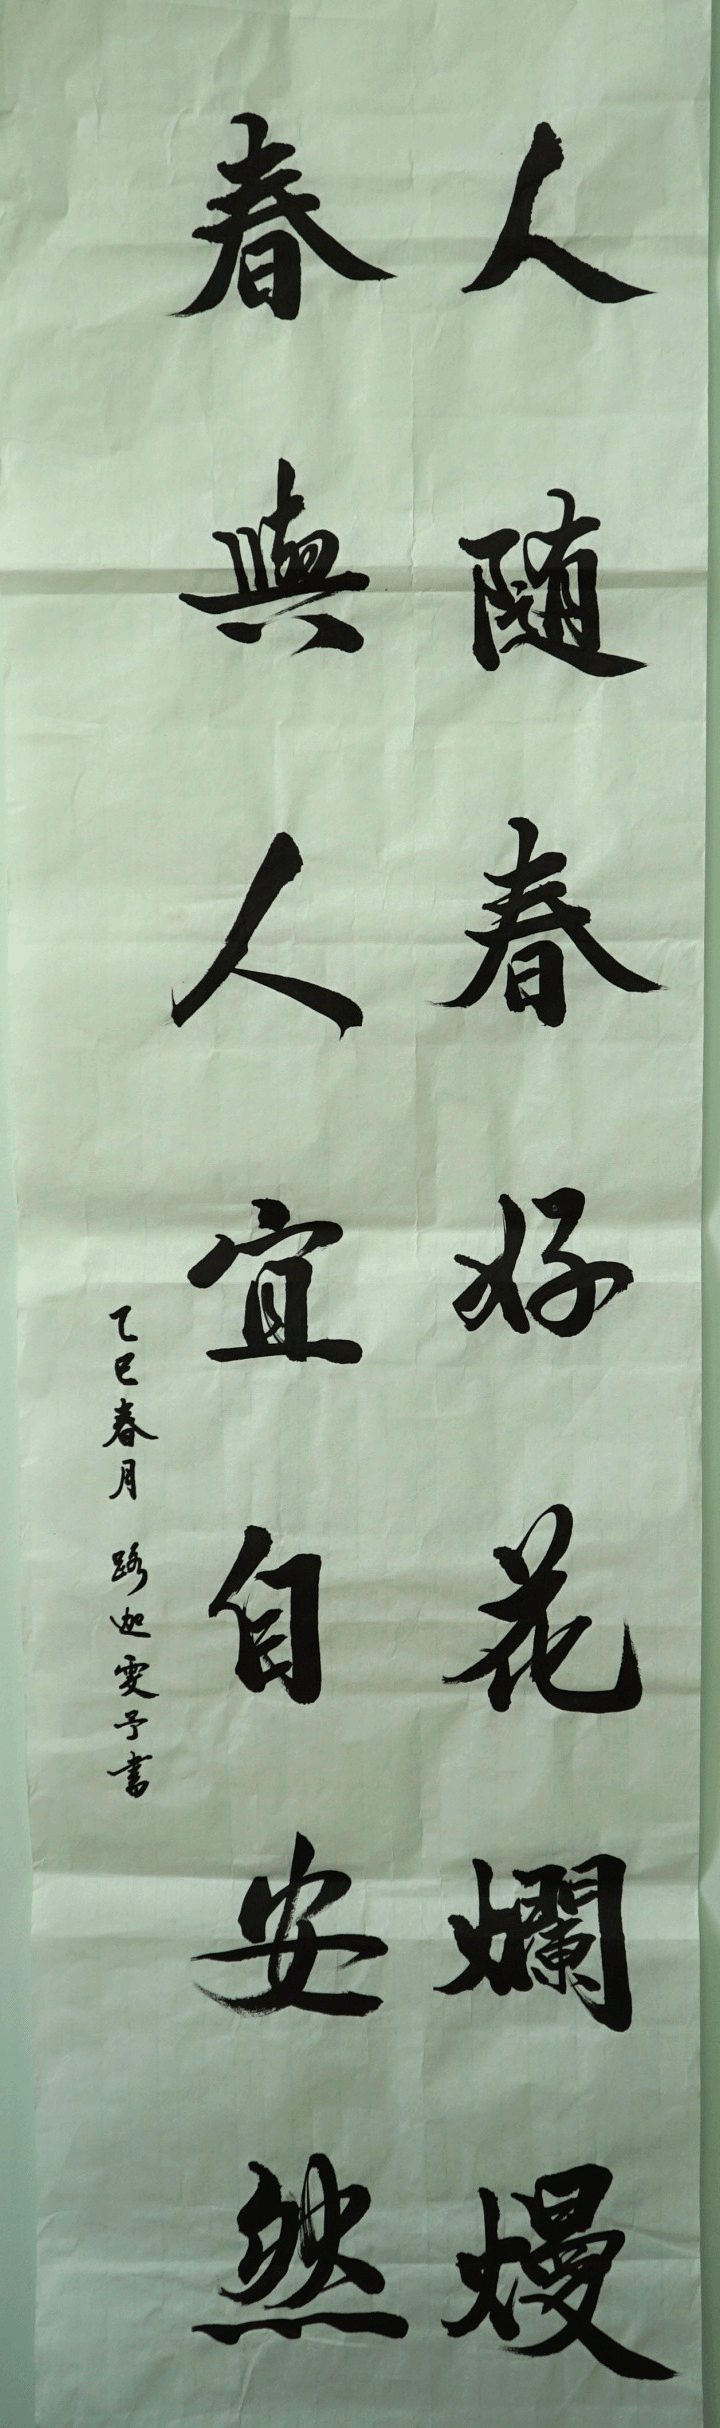 人随春好花爛熳
春與人宜自安然
乙巳春月 路迦雯予書